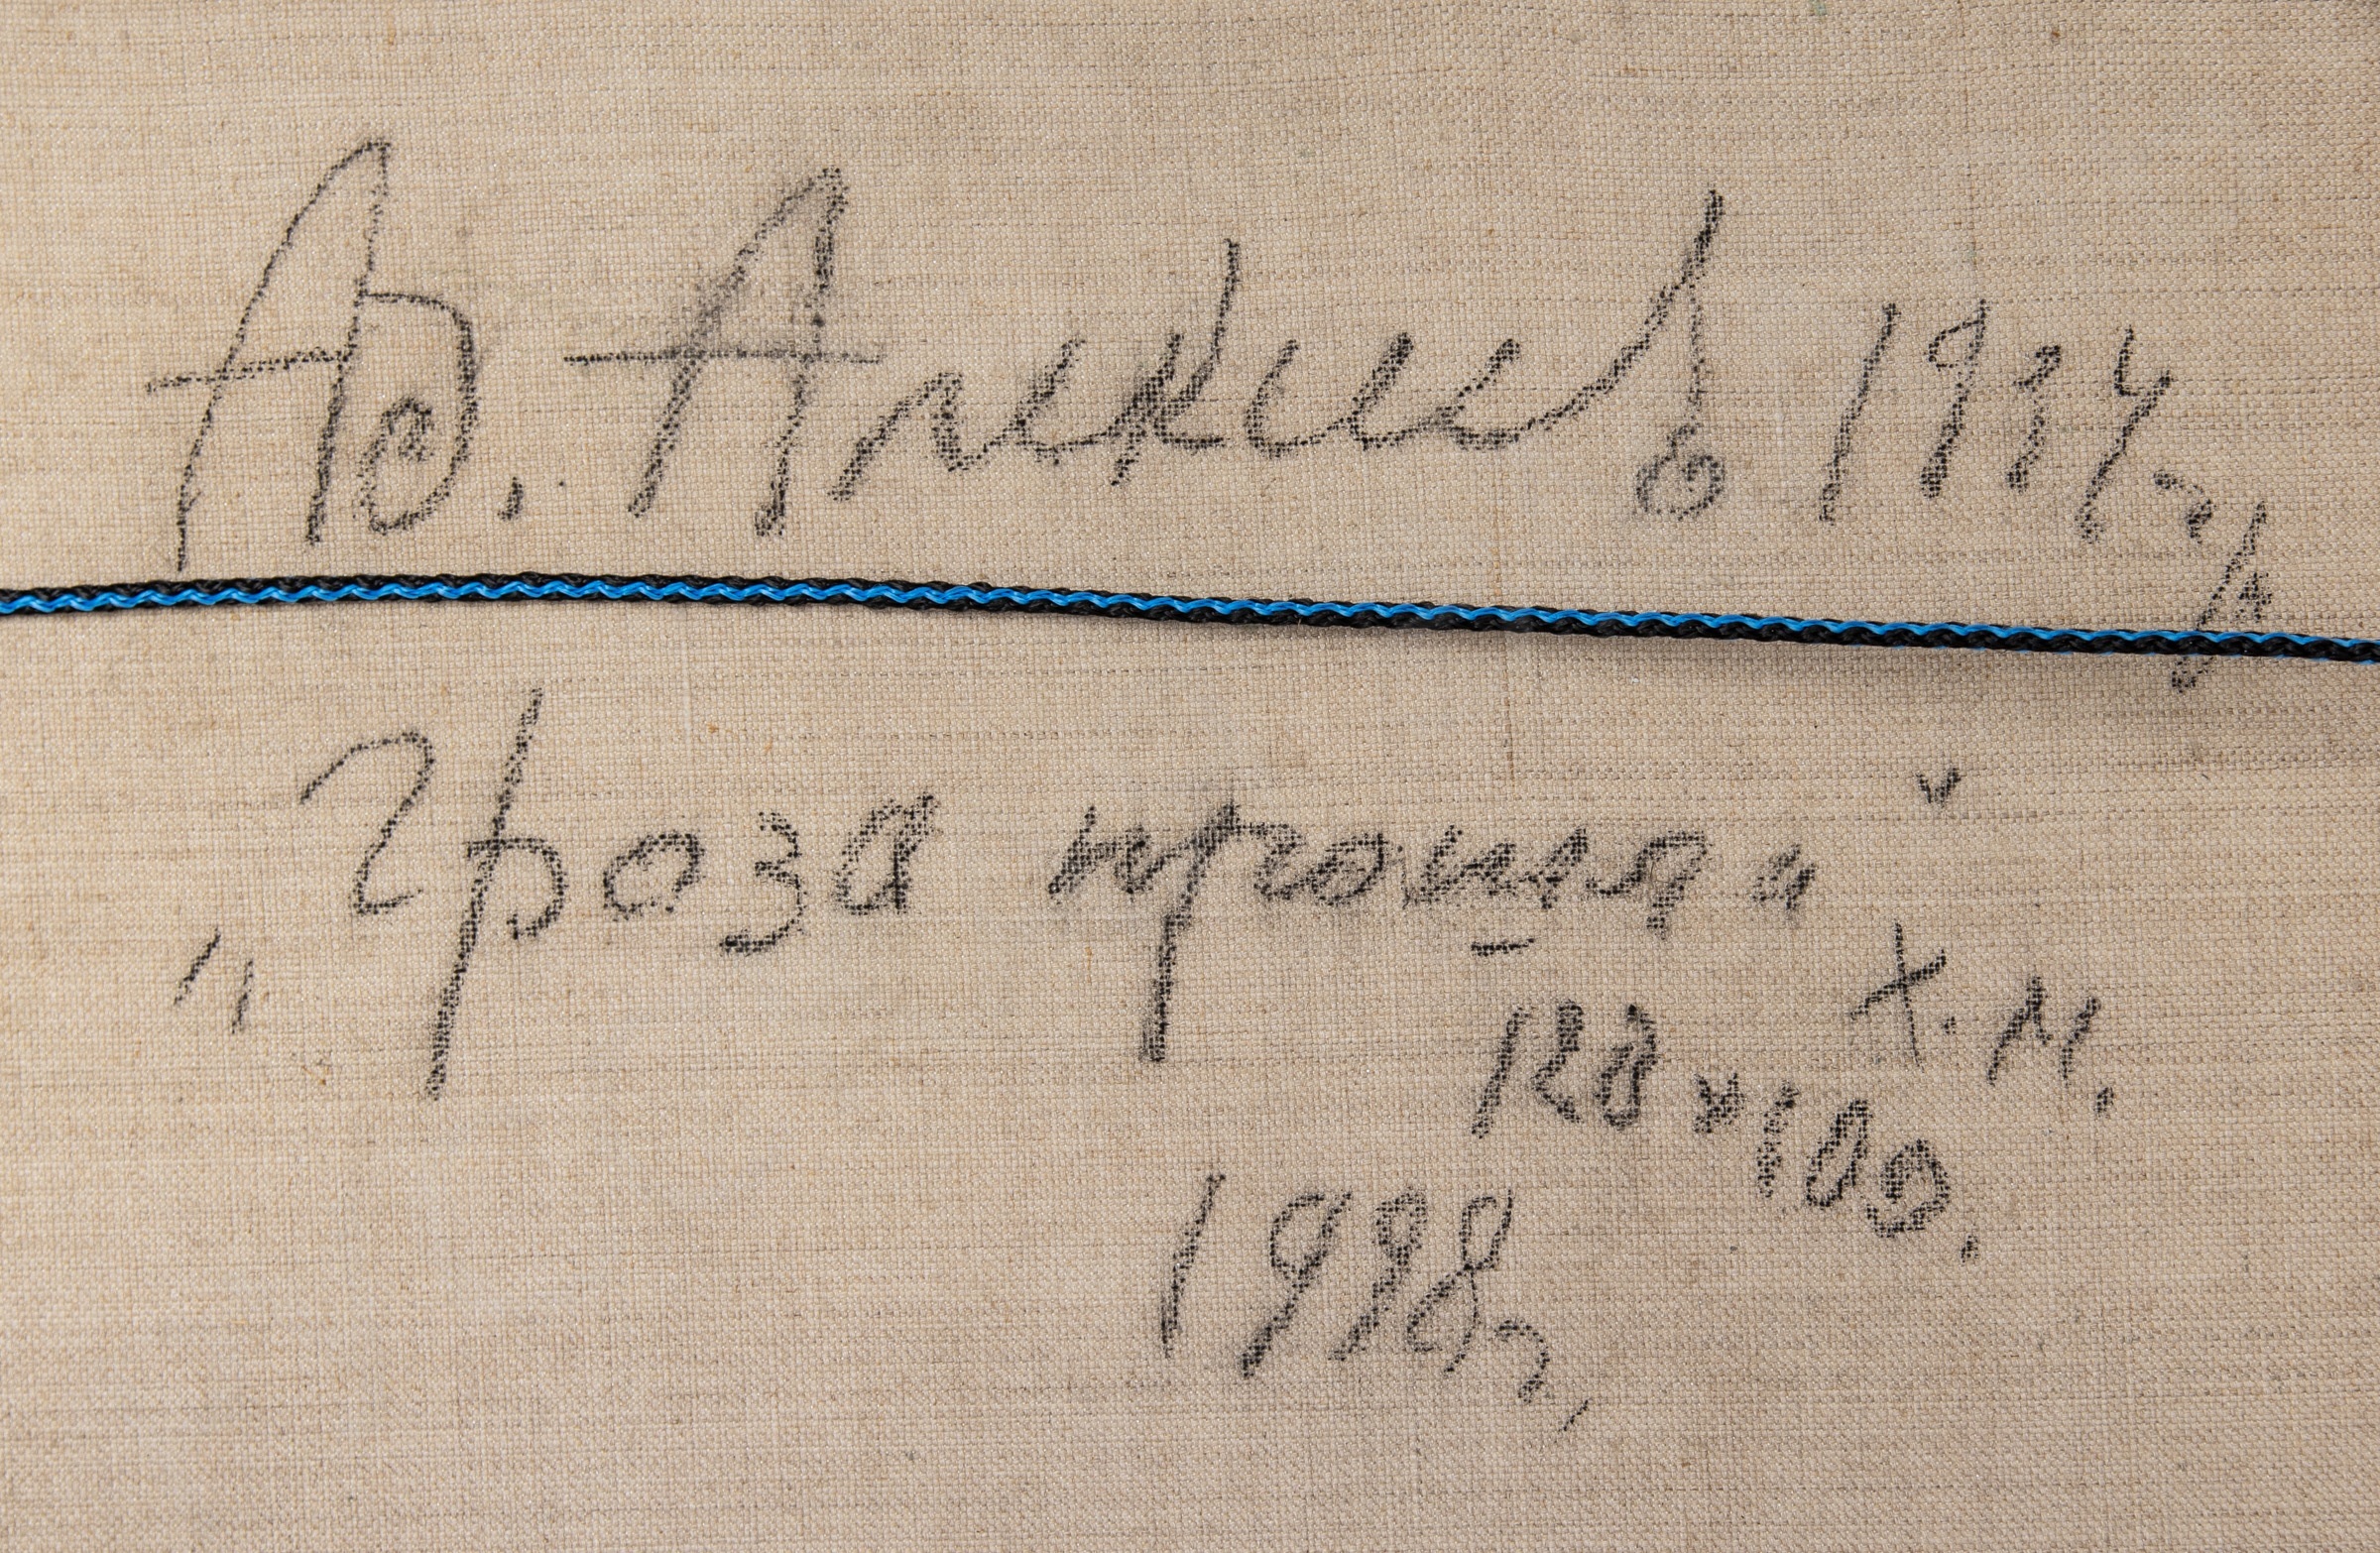 Ад. Алексеев 1934 г/р
„Гроза прошла“
х. м.
120 х 100.
1998 г.